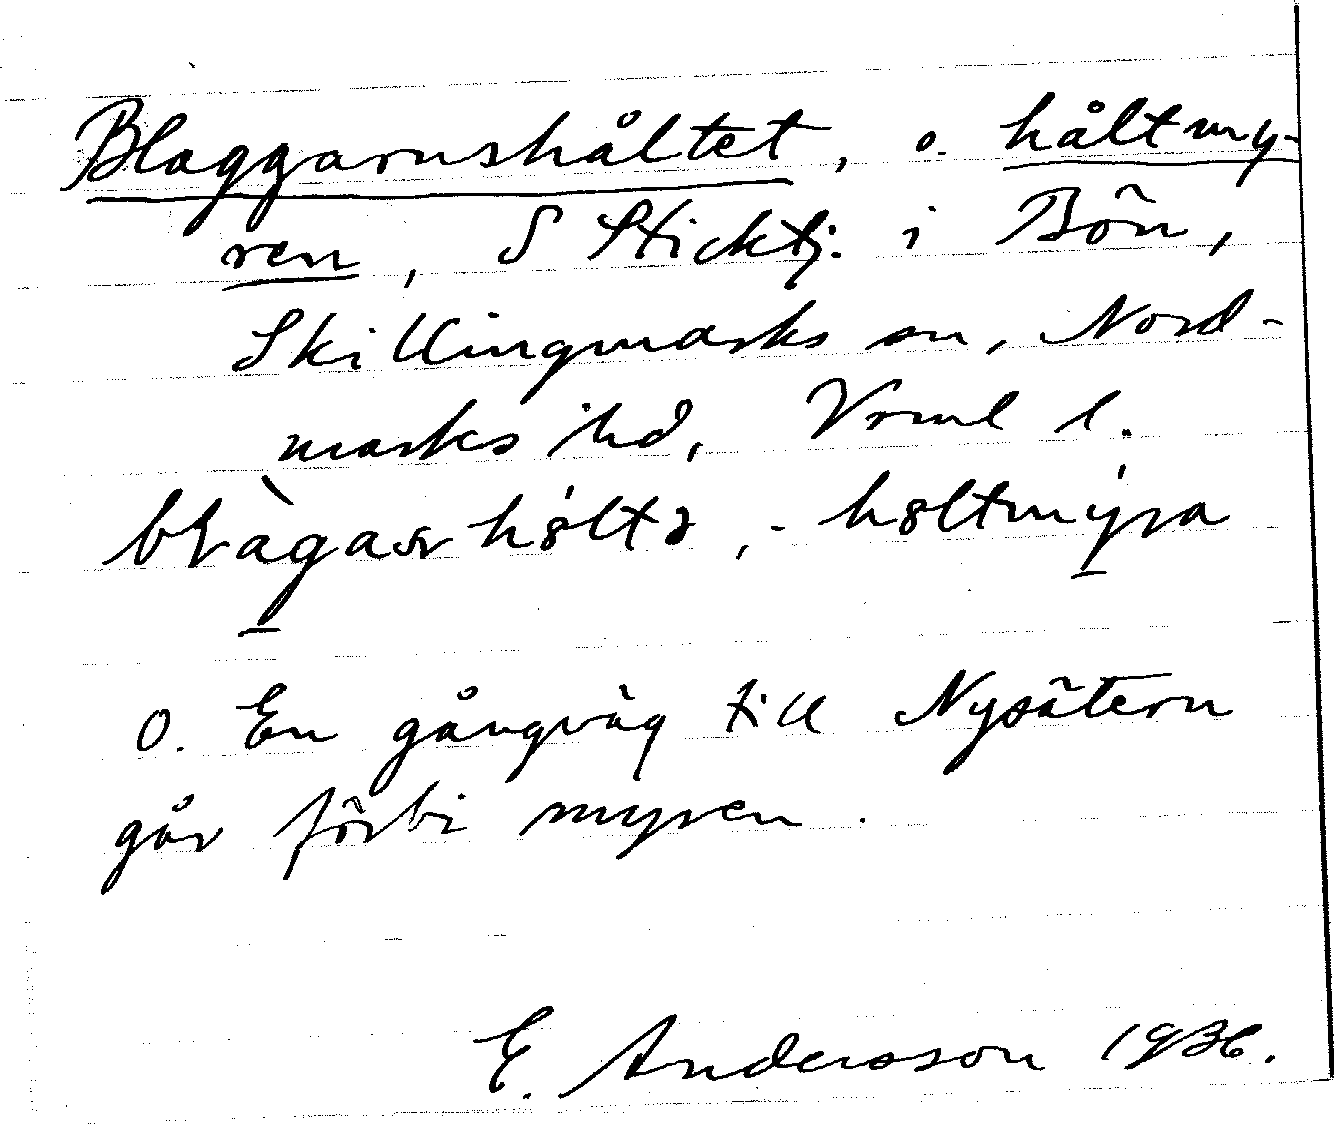 Blaggarnshåltet, o. håltmy-
ren, S Sticktj. i Bön,
Skillingmarks sn, Nord-
marks hd, Vrml l.
blàgaṣhóltə, -hołtmýra
O. En gångväg till Nysätern
går förbi myren.
E. Andersson 1936.